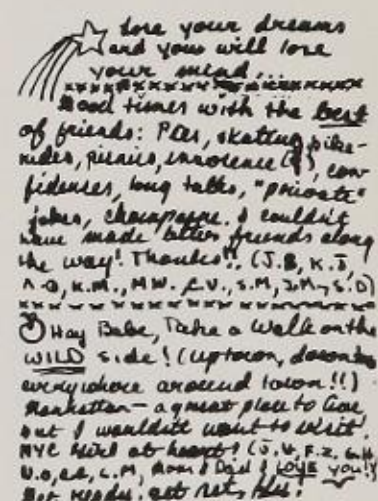 Lose your dreams
and you will lose
your mind...
Good times with the best
of friends: P.Js, skating, bike-
rides, picnics, innocence (?), con-
fidenses, long talks, "private"
jokes, champagne. I couldn't
have made better friends along
the way! Thanks!! (J.B, K.J,
K.M., M.W. C.V., S.M, S.D)
Hay Babe, Take a walk on the
WILD side! (uptown, downtown
everywhere around town!!)
Manhattan - a great place to live
but I wouldn't want to visit.
NYC Girl at heart! (J.V, F.Z,
L.M, Mom & Dad I LOVE you!)
Get ready, get set,